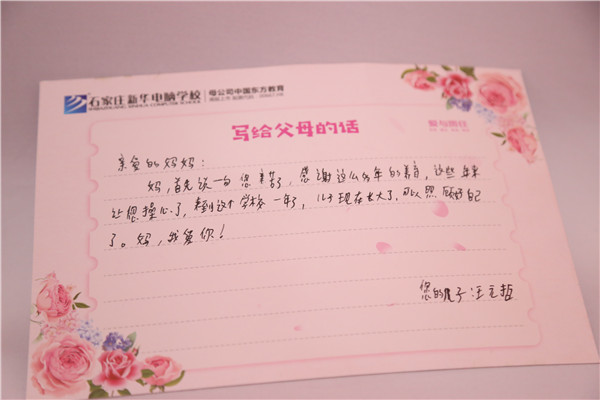 石家庄新华电脑学校 母公司中国东方教育
写给父母的话
爱与责任
亲爱的妈妈：
妈，首先说一句您辛苦了，感谢这么多年的养育，这些年来
让您操心了，来到这个学校一年了，儿子现在长大了，可以照顾好自己
了。妈，我爱你！
您的儿子：汪立哲